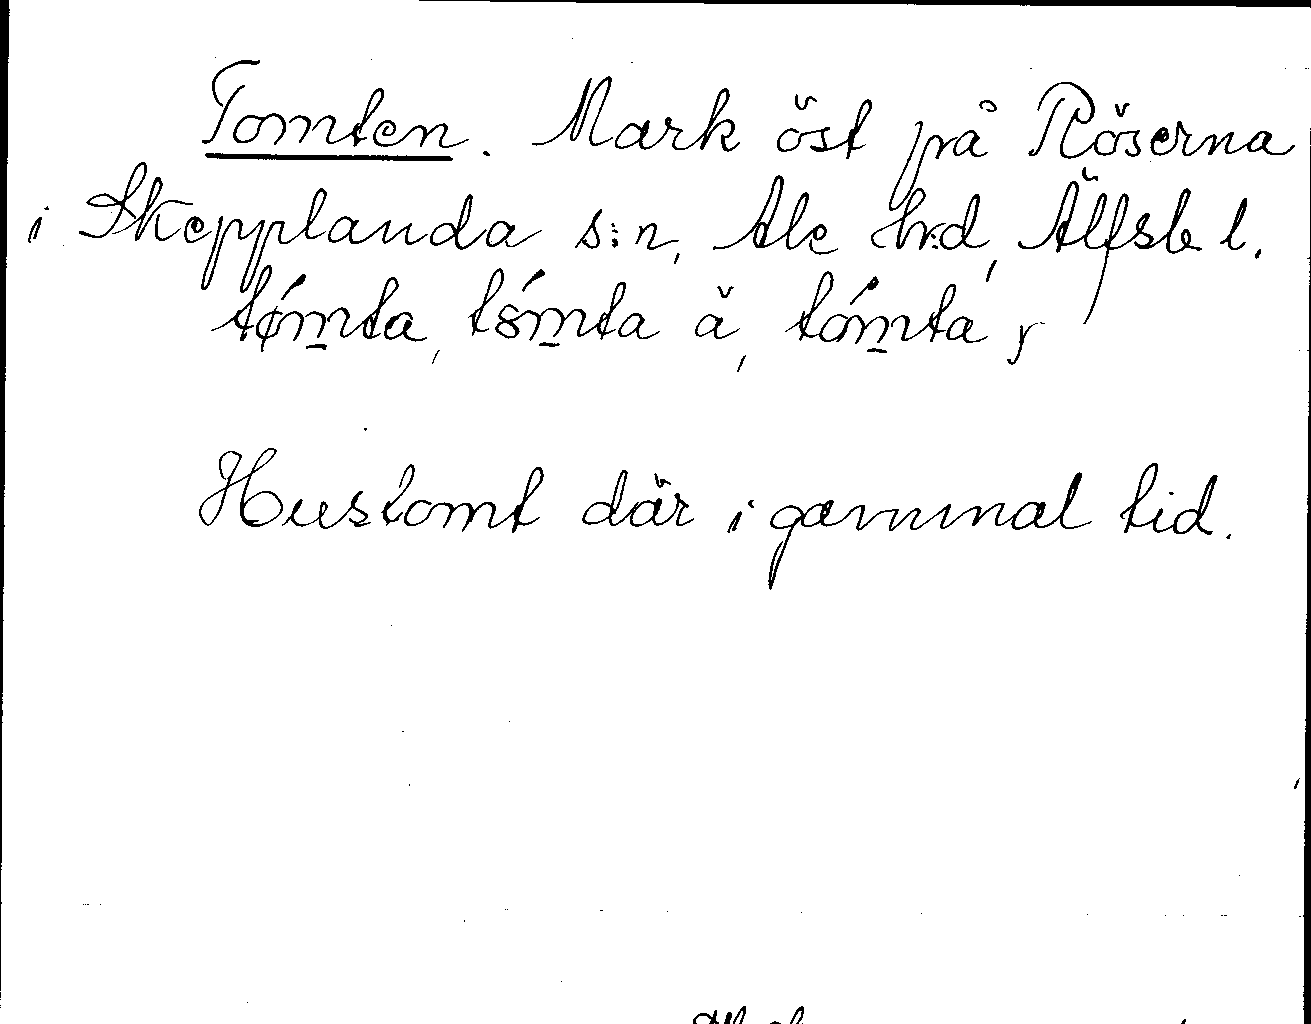 Tomten. Mark öst på Röserna
i Skepplanda s:n, Ale hrd, Älfsb l.
tǿm̲ta, tóm̲ta å, tóm̲ta,
Hustomt där i gammal tid.